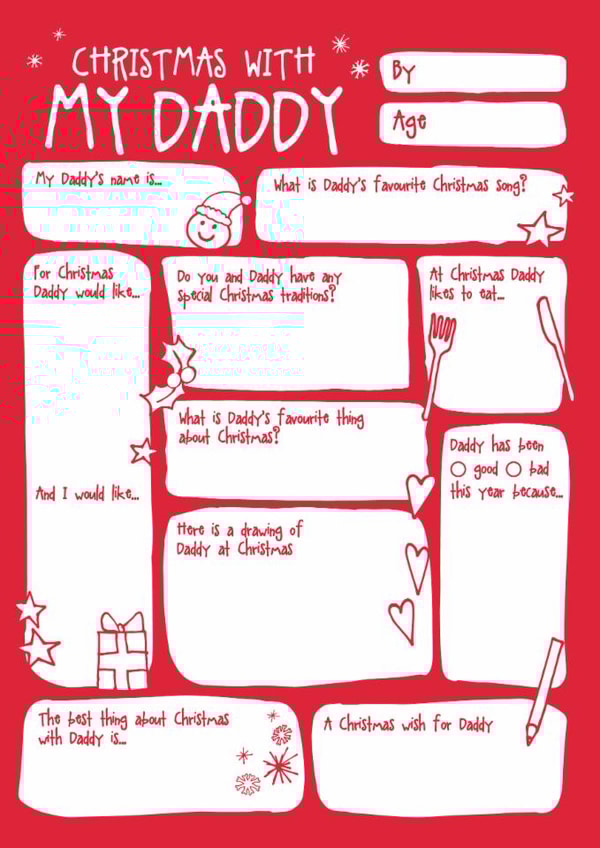 CHRISTMAS WITH
MY DADDY
By
Age
My Daddy's name is...
What is Daddy's favourite Christmas song?
For Christmas
Daddy would like...
And I would like...
Do you and Daddy have any
special Christmas traditions?
At Christmas Daddy
likes to eat...
What is Daddy's favourite thing
about Christmas?
Daddy has been
good bad
this year because...
Here is a drawing of
Daddy at Christmas
The best thing about Christmas
with Daddy is...
A Christmas wish for Daddy